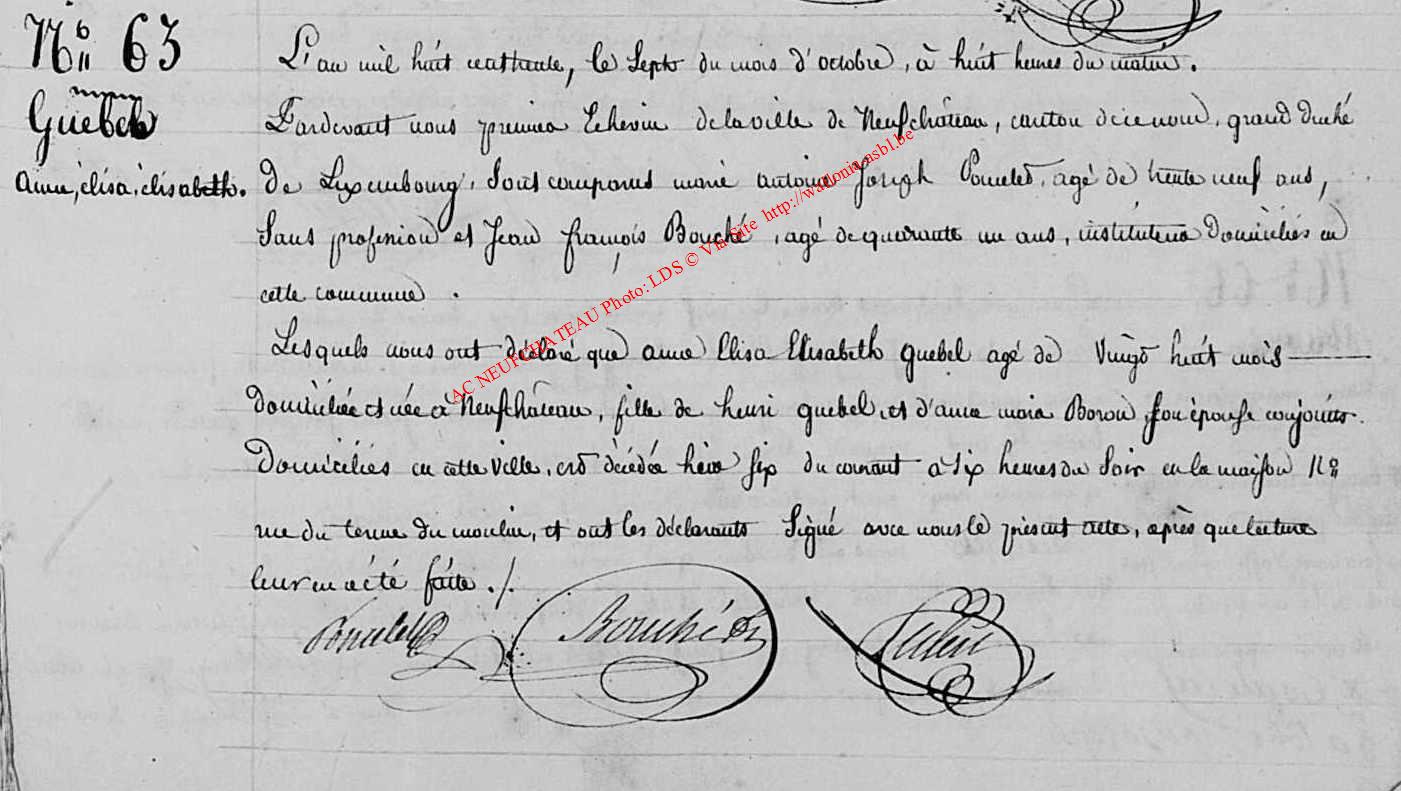 No 63
Guebel
anne, élisa, élisabeth.
L'an mil huit cent trente, le Sept du mois d'octobre, à huit heures du matin.
Pardevant nous premier Echevin de la ville de Neufchâteau, canton de ce nom, grand duché
de Luxembourg, Sont comparus marie antoine Joseph Poncelet, agé de trente neuf ans,
Sans profession et Jean françois Bouché, agé de quarante un ans, instituteur Domiciliés en
cette commune.
Lesquels nous ont déclaré que anne Elisa Elisabeth guebel agé de Vingt huit mois
Domiciliée et née à Neufchâteau, fille de henri guebel, et d'anne maria Boron, son épouse conjoints
Domiciliés en cette ville, est décédée hier six du courant à six heures du Soir en la maison No
rue du terme du moulin, et ont les déclarants Signé avec nous le présent acte, après que lecture
leur en a été faite ./.
Poncelet Bouché
AC NEUFCHATEAU Photo: LDS © Via Site http://wallonia.asbl.be